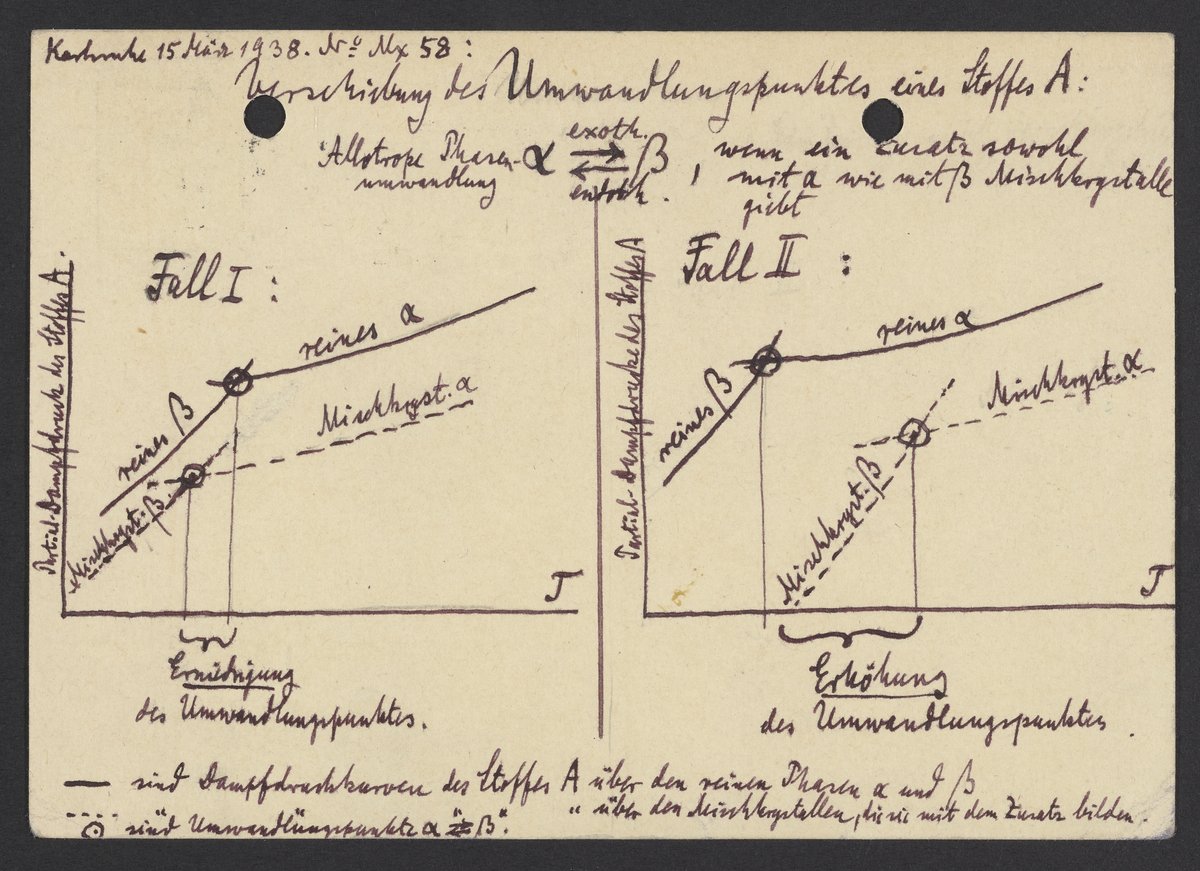 Karlsruhe 15 März 1938. No Mx 58:
Verschiebung des Umwandlungspunktes eines Stoffes A:
Allotrope Phasen-
umwandlung
α ⇄ β
exoth.
endoth.
, wenn ein Zusatz sowohl
mit α wie mit β Mischkrystalle
giebt
Fall I:
Partial-Dampfdruck des Stoffes A.
reines α
reines β
Mischkryst. α
Mischkryst. β
T
Erniedrigung
des Umwandlungspunktes.
Fall II :
Partial-Dampfdrucke des Stoffes A
reines α
reines β
Mischkryst. α
Mischkryst. β
T
Erhöhung
des Umwandlungspunktes.
— sind Dampfdruckkurven des Stoffes A über den reinen Phasen α und β
---- " über den Mischkrystallen, die sie mit dem Zusatz bilden.
⊙ sind Umwandlungspunkte α "⇄" β.